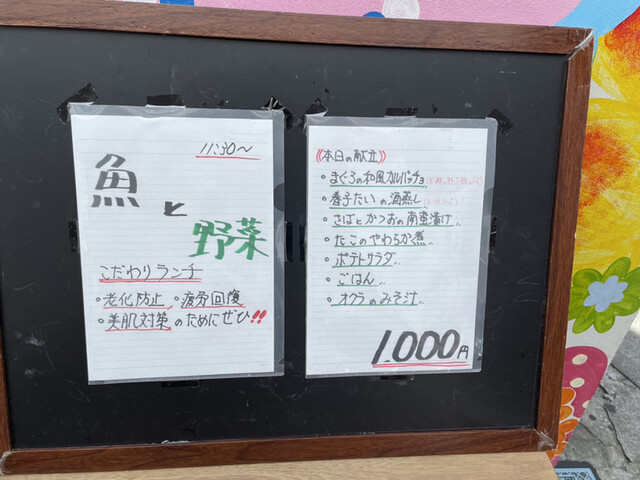 11:30〜
魚
と
野菜
こだわりランチ
・老化防止・疲労回復
・美肌対策のためにぜひ!!
《本日の献立》
・まぐろの和風カルパッチョ
・春子たいの酒蒸し
・さばとかつおの南蛮漬け
・たこのやわらか煮
・ポテトサラダ
・ごはん
・オクラのみそ汁
1.000円